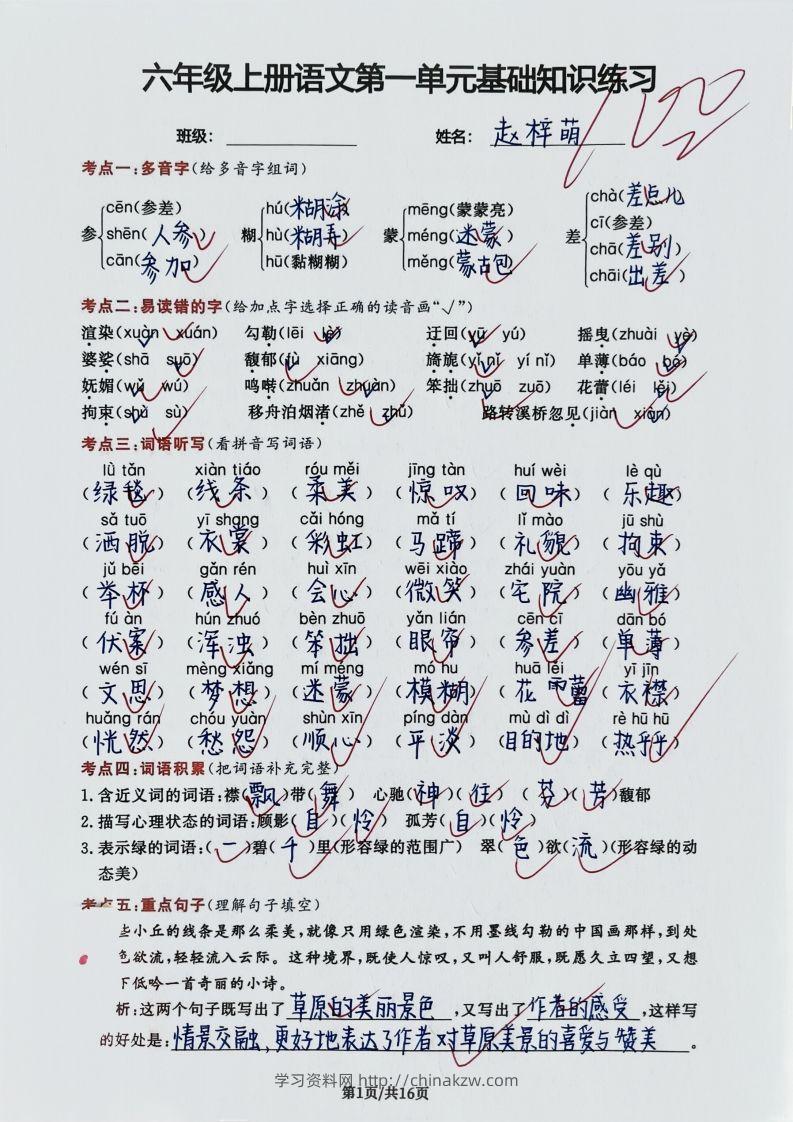 六年级上册语文第一单元基础知识练习
100
班级：________ 姓名：赵梓萌
考点一：多音字（给多音字组词）
参 cēn（参差） shēn（人参） cān（参加）
糊 hú（糊涂） hù（糊弄） hū（黏糊糊）
蒙 mēng（蒙蒙亮） méng（迷蒙） měng（蒙古包）
差 chà（差点儿） cī（参差） chā（差别） chāi（出差）
考点二：易读错的字（给加点字选择正确的读音画“√”）
渲染（xuàn xuán） 勾勒（lēi lè） 迂回（yū yú） 摇曳（zhuài yè）
婆娑（shā suō） 馥郁（fù xiāng） 旖旎（yǐ nǐ yí nǐ） 单薄（báo bó）
妩媚（wǔ wú） 鸣啭（zhuǎn zhuàn） 笨拙（zhuō zuō） 花蕾（léi lěi）
拘束（shù sù） 移舟泊烟渚（zhě zhǔ） 路转溪桥忽见（jiàn xiàn）
考点三：词语听写（看拼音写词语）
lǜ tǎn xiàn tiáo róu měi jīng tàn huí wèi lè qù
（绿毯） （线条） （柔美） （惊叹） （回味） （乐趣）
sǎ tuō yī shang cǎi hóng mǎ tí lǐ mào jū shù
（洒脱） （衣裳） （彩虹） （马蹄） （礼貌） （拘束）
jǔ bēi gǎn rén huì xīn wēi xiào zhái yuàn yōu yǎ
（举杯） （感人） （会心） （微笑） （宅院） （幽雅）
fú àn hún zhuó bèn zhuō yǎn lián cēn cī dān bó
（伏案） （浑浊） （笨拙） （眼帘） （参差） （单薄）
wén sī mèng xiǎng mí méng mó hu huā lěi yī jīn
（文思） （梦想） （迷蒙） （模糊） （花蕾） （衣襟）
huǎng rán chóu yuàn shùn xīn píng dàn mù dì dì rè hū hū
（恍然） （愁怨） （顺心） （平淡） （目的地） （热乎乎）
考点四：词语积累（把词语补充完整）
1. 含近义词的词语：襟（飘）带（舞） 心驰（神）（往） （芬）（芳）馥郁
2. 描写心理状态的词语：顾影（自）（怜） 孤芳（自）（怜）
3. 表示绿的词语：（一）碧（千）里（形容绿的范围广） 翠（色）欲（流）（形容绿的动
态美）
考点五：重点句子（理解句子填空）
些小丘的线条是那么柔美，就像只用绿色渲染，不用墨线勾勒的中国画那样，到处
色欲流，轻轻流入云际。这种境界，既使人惊叹，又叫人舒服，既愿久立四望，又想
下低吟一首奇丽的小诗。
析：这两个句子既写出了草原的美丽景色，又写出了作者的感受，这样写
的好处是：情景交融，更好地表达了作者对草原美景的喜爱与赞美。
学习资料网 http://chinakzw.com
第1页/共16页